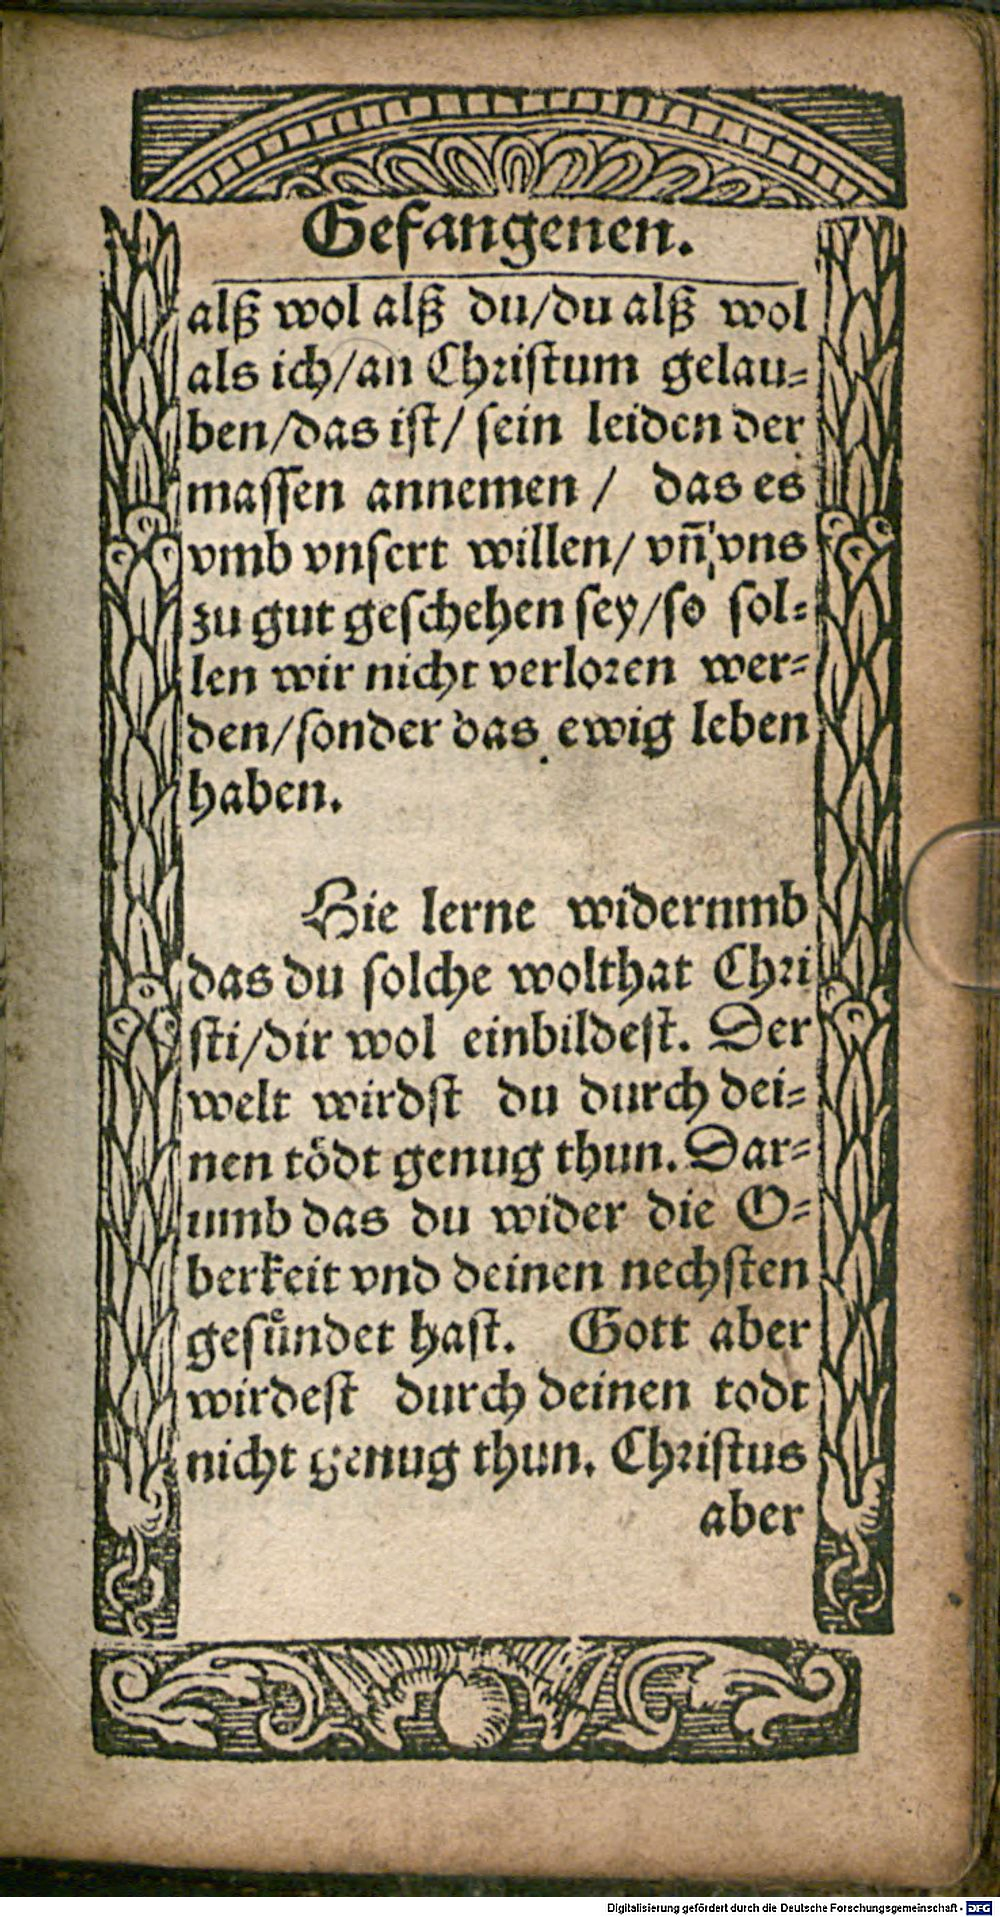 Gefangenen.
alß wol alß du/du alß wol
als ich/an Christum gelau⸗
ben/das ist/ sein leiden der
massen annemen / das es
vmb vnsert willen/ vñ vns
zu gut geschehen sey/so sol⸗
len wir nicht verloren wer⸗
den/sonder das ewig leben
haben.
Hie lerne widerumb
das du solche wolthat Chri
sti/dir wol einbildest. Der
welt wirdst du durch dei⸗
nen tödt genug thun. Dar⸗
umb das du wider die O⸗
berkeit vnd deinen nechsten
gesündet hast. Gott aber
wirdest durch deinen todt
nicht genug thun. Christus
aber
Digitalisierung gefördert durch die Deutsche Forschungsgemeinschaft - DFG